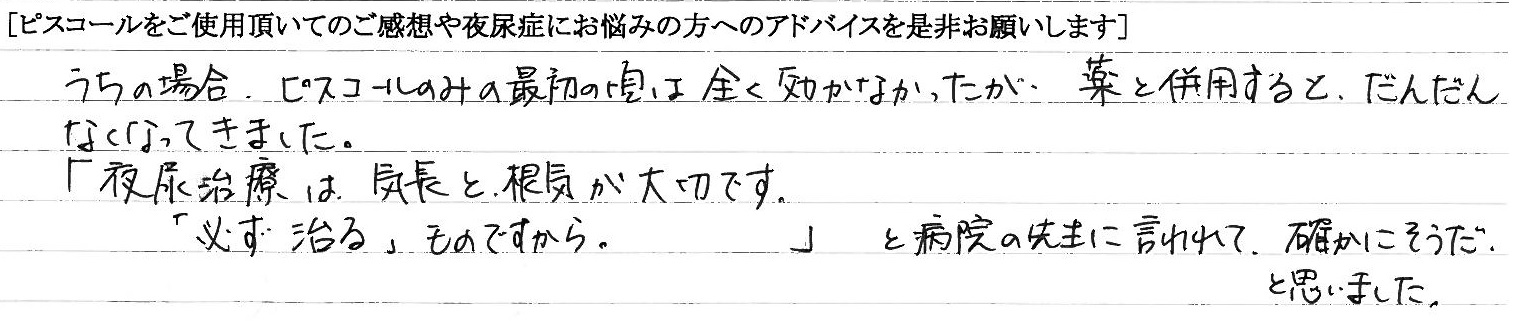 [ピスコールをご使用頂いてのご感想や夜尿症にお悩みの方へのアドバイスを是非お願いします]
うちの場合、ピスコールのみの最初の頃は全く効かなかったが、薬と併用すると、だんだん
なくなってきました。
「夜尿治療は、気長と、根気が大切です。
「必ず治る」ものですから。　　　」と病院の先生に言われて、確かにそうだ、
と思いました。